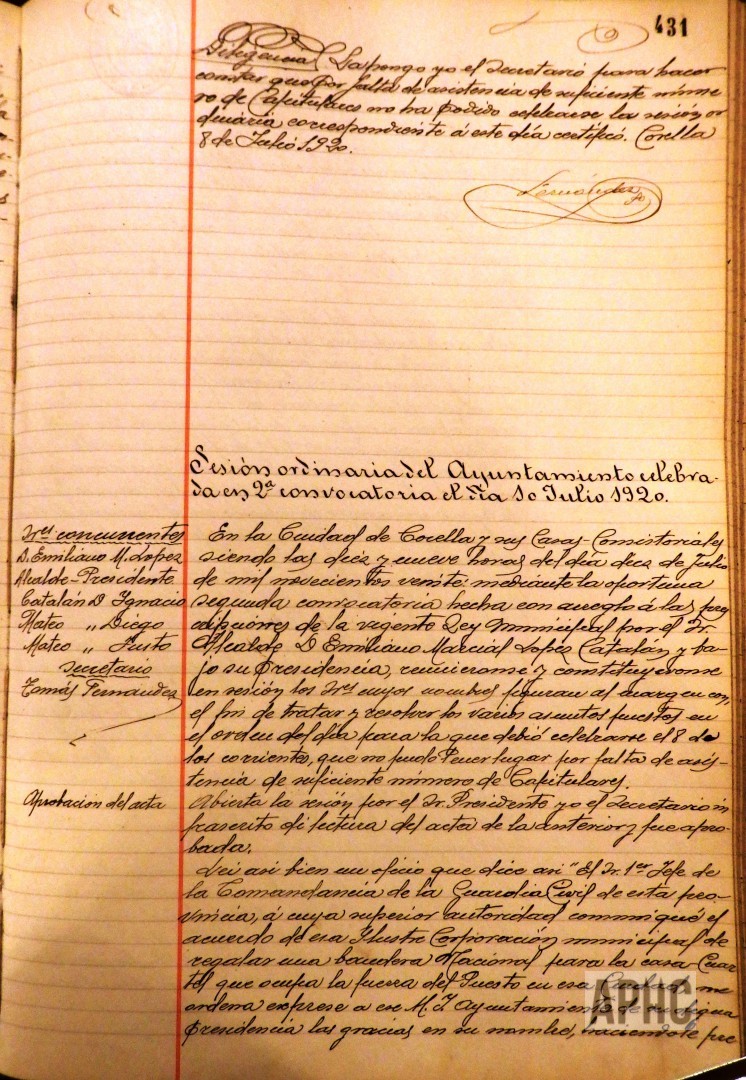 431
Diligencia La pongo yo el Secretario para hacer
constar que por falta de asistencia de suficiente núme-
ro de Capitulares no ha podido celebrarse la sesión or-
dinaria correspondiente á este día certificó. Corella
8 de Julio 1920.
Fernández
Sesión ordinaria del Ayuntamiento celebra-
da en 2ª convocatoria el día 10 Julio 1920.
Sres concurrentes
D. Emiliano M. Lopez
Alcalde-Presidente
Catalán D Ignacio
Mateo „ Diego
Mateo „ Justo
Secretario
Tomás Fernandez
En la Ciudad de Corella y sus Casas-Consistoriales
siendo las diez y nueve horas del día diez de Julio
de mil novecientos veinte: mediante la oportuna
segunda convocatoria hecha con arreglo á las pres
cripciones de la vigente Ley Municipal por el Sr.
Alcalde D Emiliano Marcial Lopez Catalán y ba-
jo su Presidencia, reunieronse y constituyeronse
en sesión los Sres cuyos nombres figuran al margen con
el fin de tratar y resolver los varios asuntos puestos en
el orden del día para la que debió celebrarse el 8 de
los corrientes, que no pudo tener lugar por falta de asis-
tencia de suficiente número de Capitulares.
Aprobación del acta
Abierta la sesión por el Sr. Presidente yo el Secretario in
frascrito di lectura del acta de la anterior y fue apro-
bada.
Lei asi bien un oficio que dice asi "El Sr. 1er Jefe de
la Comandancia de la Guardia Civil de esta pro-
vincia, á cuya superior autoridad comuniqué el
acuerdo de esa Ilustre Corporación municipal de
regalar una bandera Nacional para la casa Cuar
tel que ocupa la fuerza del Puesto en esa Ciudad, me
ordena exprese a ese M. I. Ayuntamiento de su digna
Presidencia las gracias en su nombre, haciendose pre
APHC